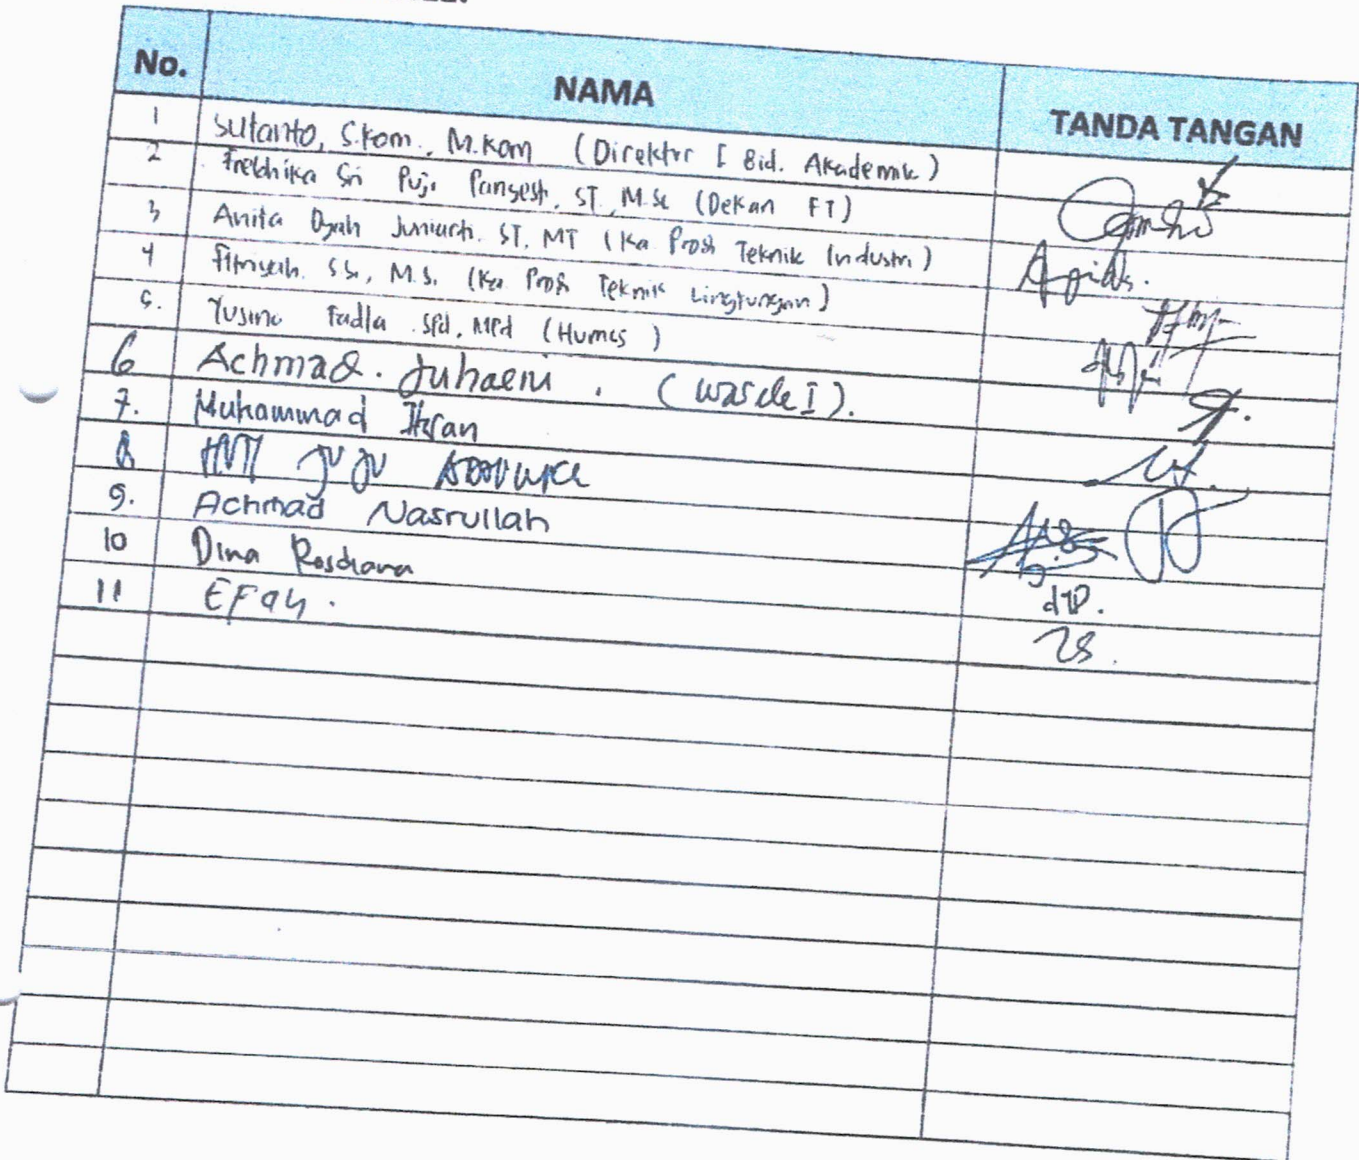 No. NAMA TANDA TANGAN
1 Sutanto, S.Kom., M.Kom (Direktur I Bid. Akademik)
2 Fredhika Sri Puji Pangesti, ST, M.Sc (Dekan FT)
3 Anita Dyah Juniarti. ST, MT (Ka Prodi Teknik Industri)
4 Fitriyah. S.Si, M.Si (Ka Prodi Teknik Lingkungan)
5. Yusino Fadla Spd, MPd (Humas)
6 Achmad. Juhaeni. (Wasek I).
7. Muhammad Ikran
8
9. Achmad Nasrullah
10 Dina Rosdiana
11 EFah.